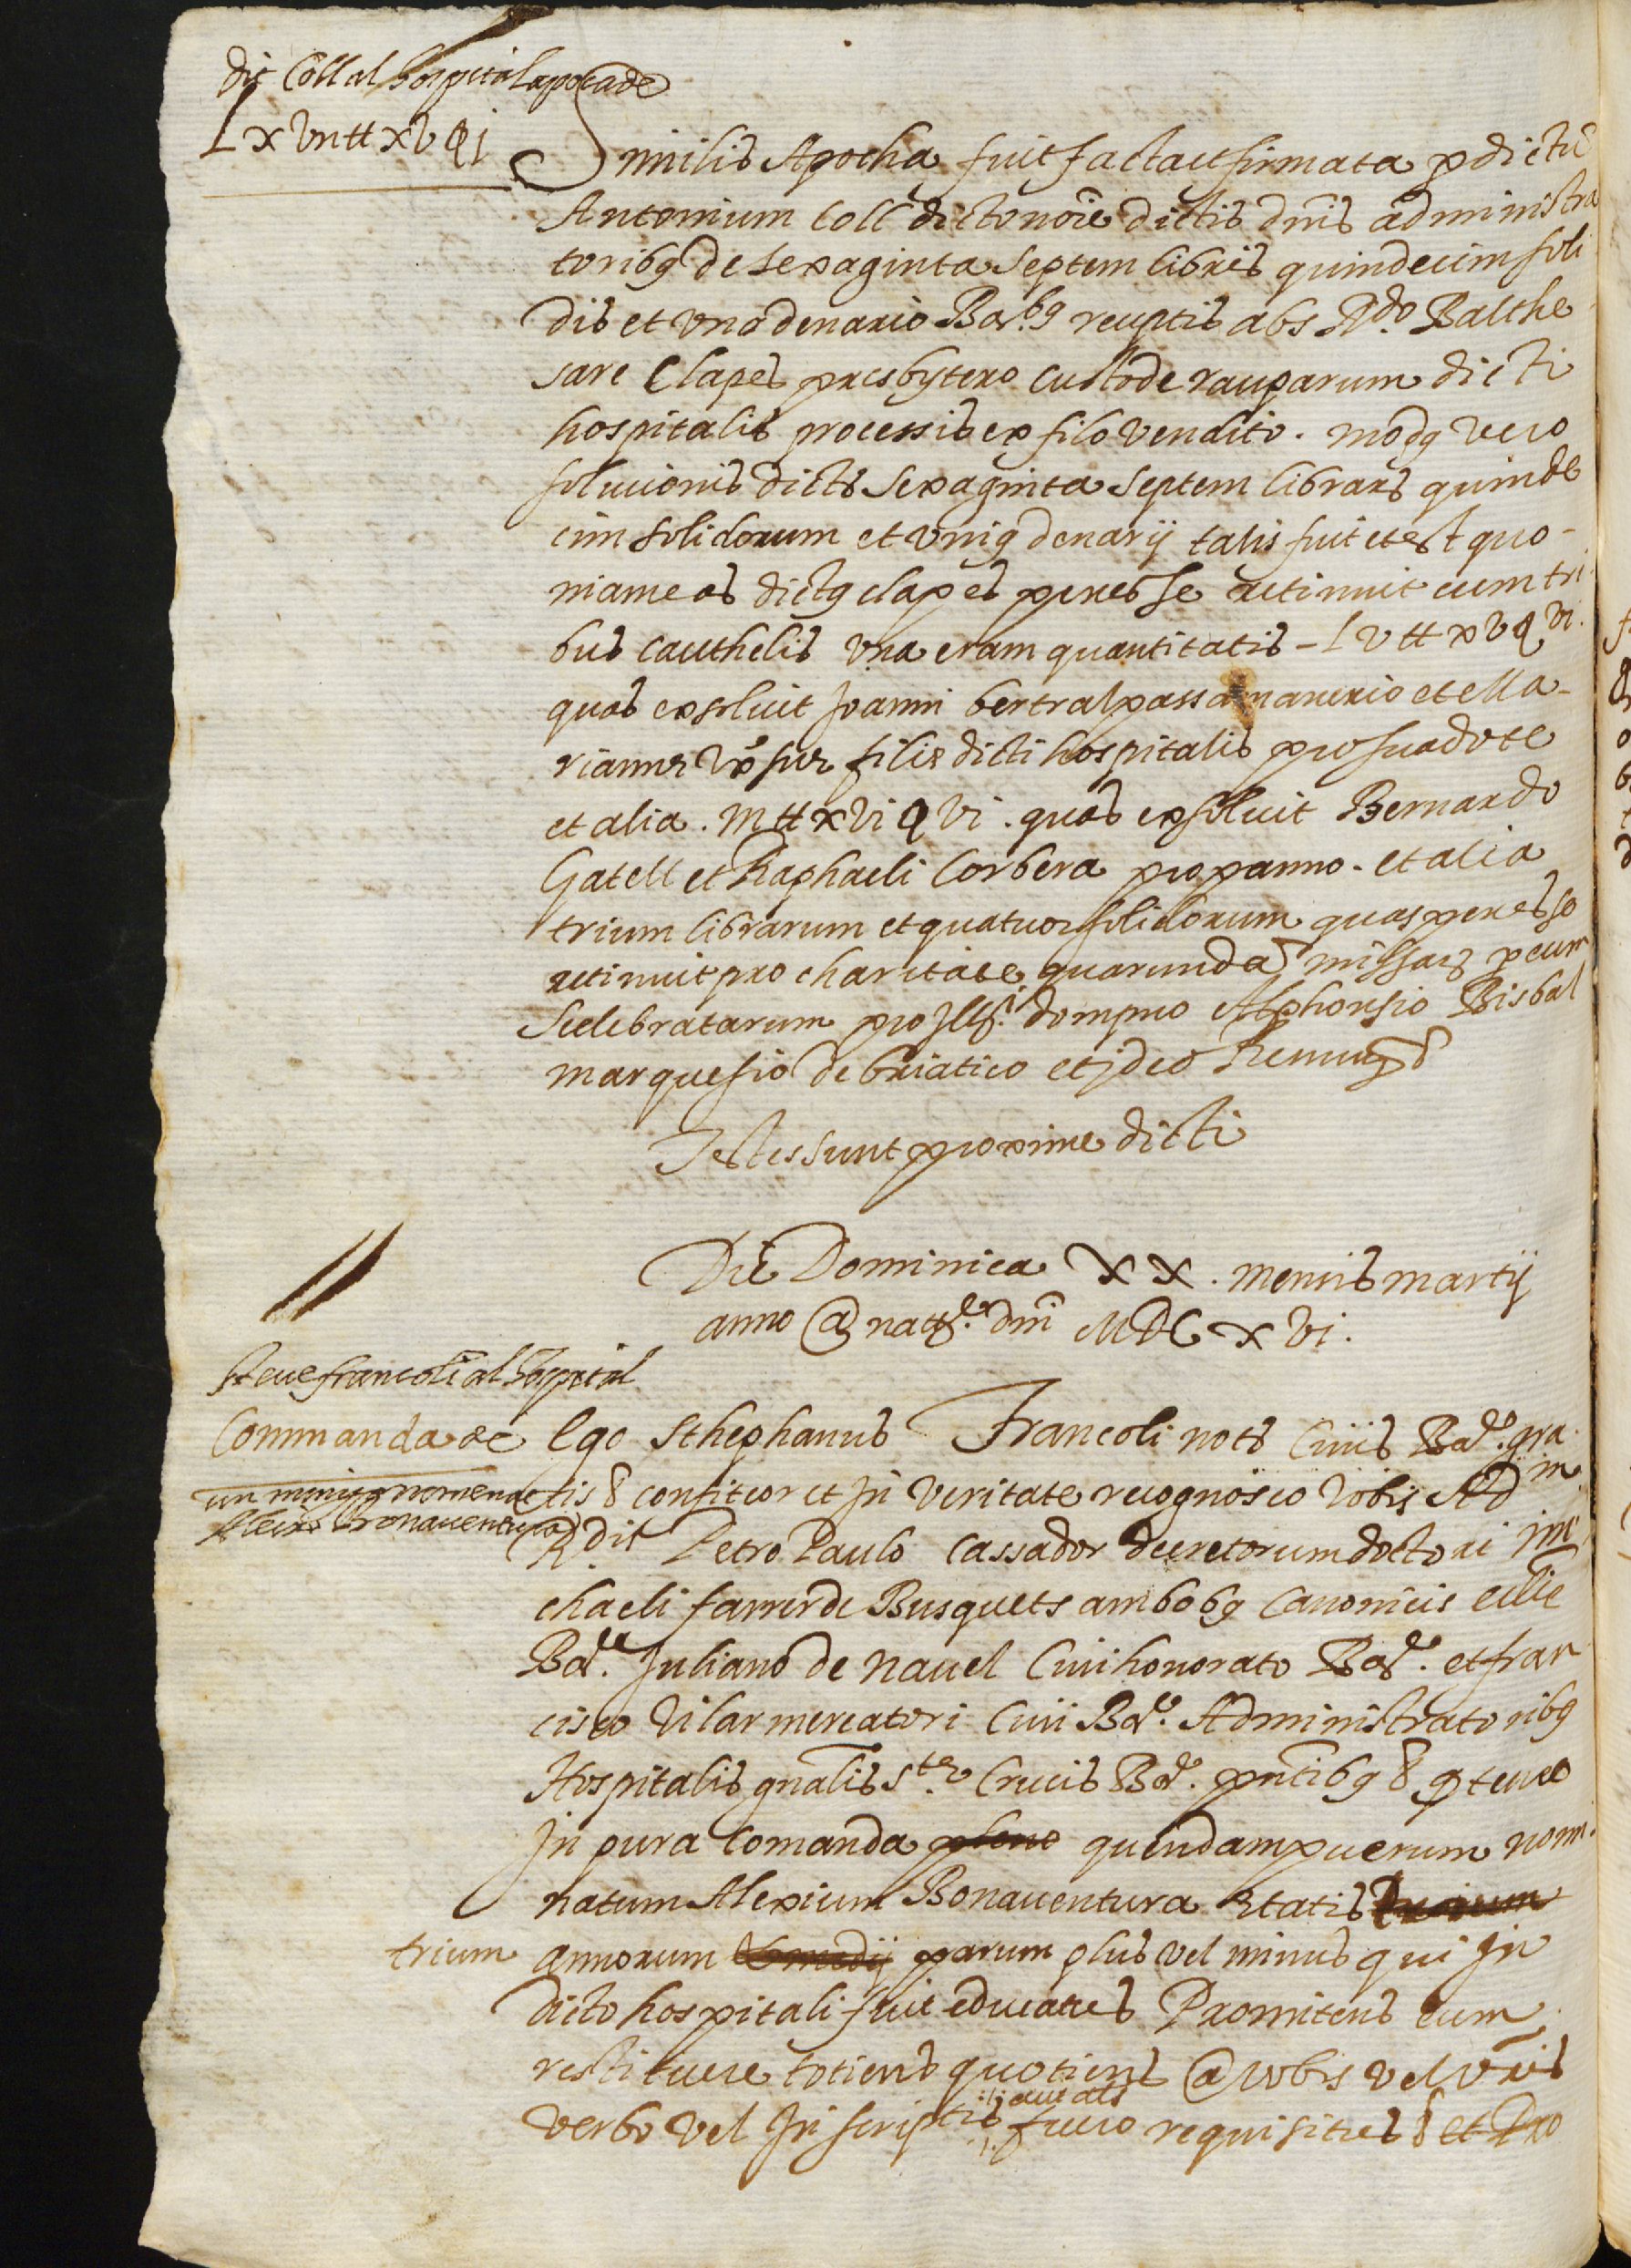 dit Coll al hospital apoca de
Lxvii tt xv ꝗ j
Similis Apocha fuit facta et firmata p dictũ
Antonium Coll dicto noĩe dictis dnĩs administra
toribꝯ de sexaginta septem libris quindecim soli
dis et uno denario Barꝰ receptis abs Rdo Balthe
sare Clapes presbytero custode rauparum dicti
hospitalis processis ex filo vendito. modꝯ vero
solucionis dictꝭ sexaginta septem librarꝭ quinde
cim solidorum et uniꝯ denarij talis fuit et est quo-
niam eas dictꝯ clapes penes se retinuit cum tri
bus cauthelis una eram quantitatis - Lv tt xv ꝗ vi.
quas exsoluit Joanni bertral passamanerio et Ma-
rianne uxͦ sue filie dicti hospitalis pro sua dote
et alia. m tt xvi ꝗ vi. quas exsoluit Bernardo
Gatell et Raphaeli Corbera pro panno. et alia
trium librarum et quatuor solidorum quas penes se
retinuit pro charitate quarundã missarꝝ p eum
Selebratarum pro Illꝭ. dompno Alphonsio Bisbal
marquesio de briatico et ideo Renunꝭ
Testes sunt proxime dicti
Die Dominica XX. mensis martij
anno @ natte. dnĩ MDCxvi.
Steue francoli al hospital
Commanda de
un miniyo nomenat
Aleix Bonauentura
Ego Sthephanus Francoli notꝭ Ciuis Bar. gra
tis & confiteor et In veritate recognosco vobis Adm
Rdis Petro Paulo Cassador decretorum doctori mi
chaeli farrer de Busquets ambobꝯ Canonicis ecclie
Bar. Juliano de Nauel Ciui honorato Bar. et fran
cisco Vilar mercatori Ciui Bar. Administratoribꝯ
Hospitalis gnãlis Ste Crucis Bar. pntibꝯ & ꝙ teneo
In pura Comanda plene quendam puerum nomi
natum Alexium Bonauentura Etatis
trium annorum & medij parum plus vel minus qui In
dicto hospitali fuit educatus Promitens eum
restituere totiens quotiens @ vobis vel vrĩs
verbo vel In scriptis fuero requisitus & et Pro